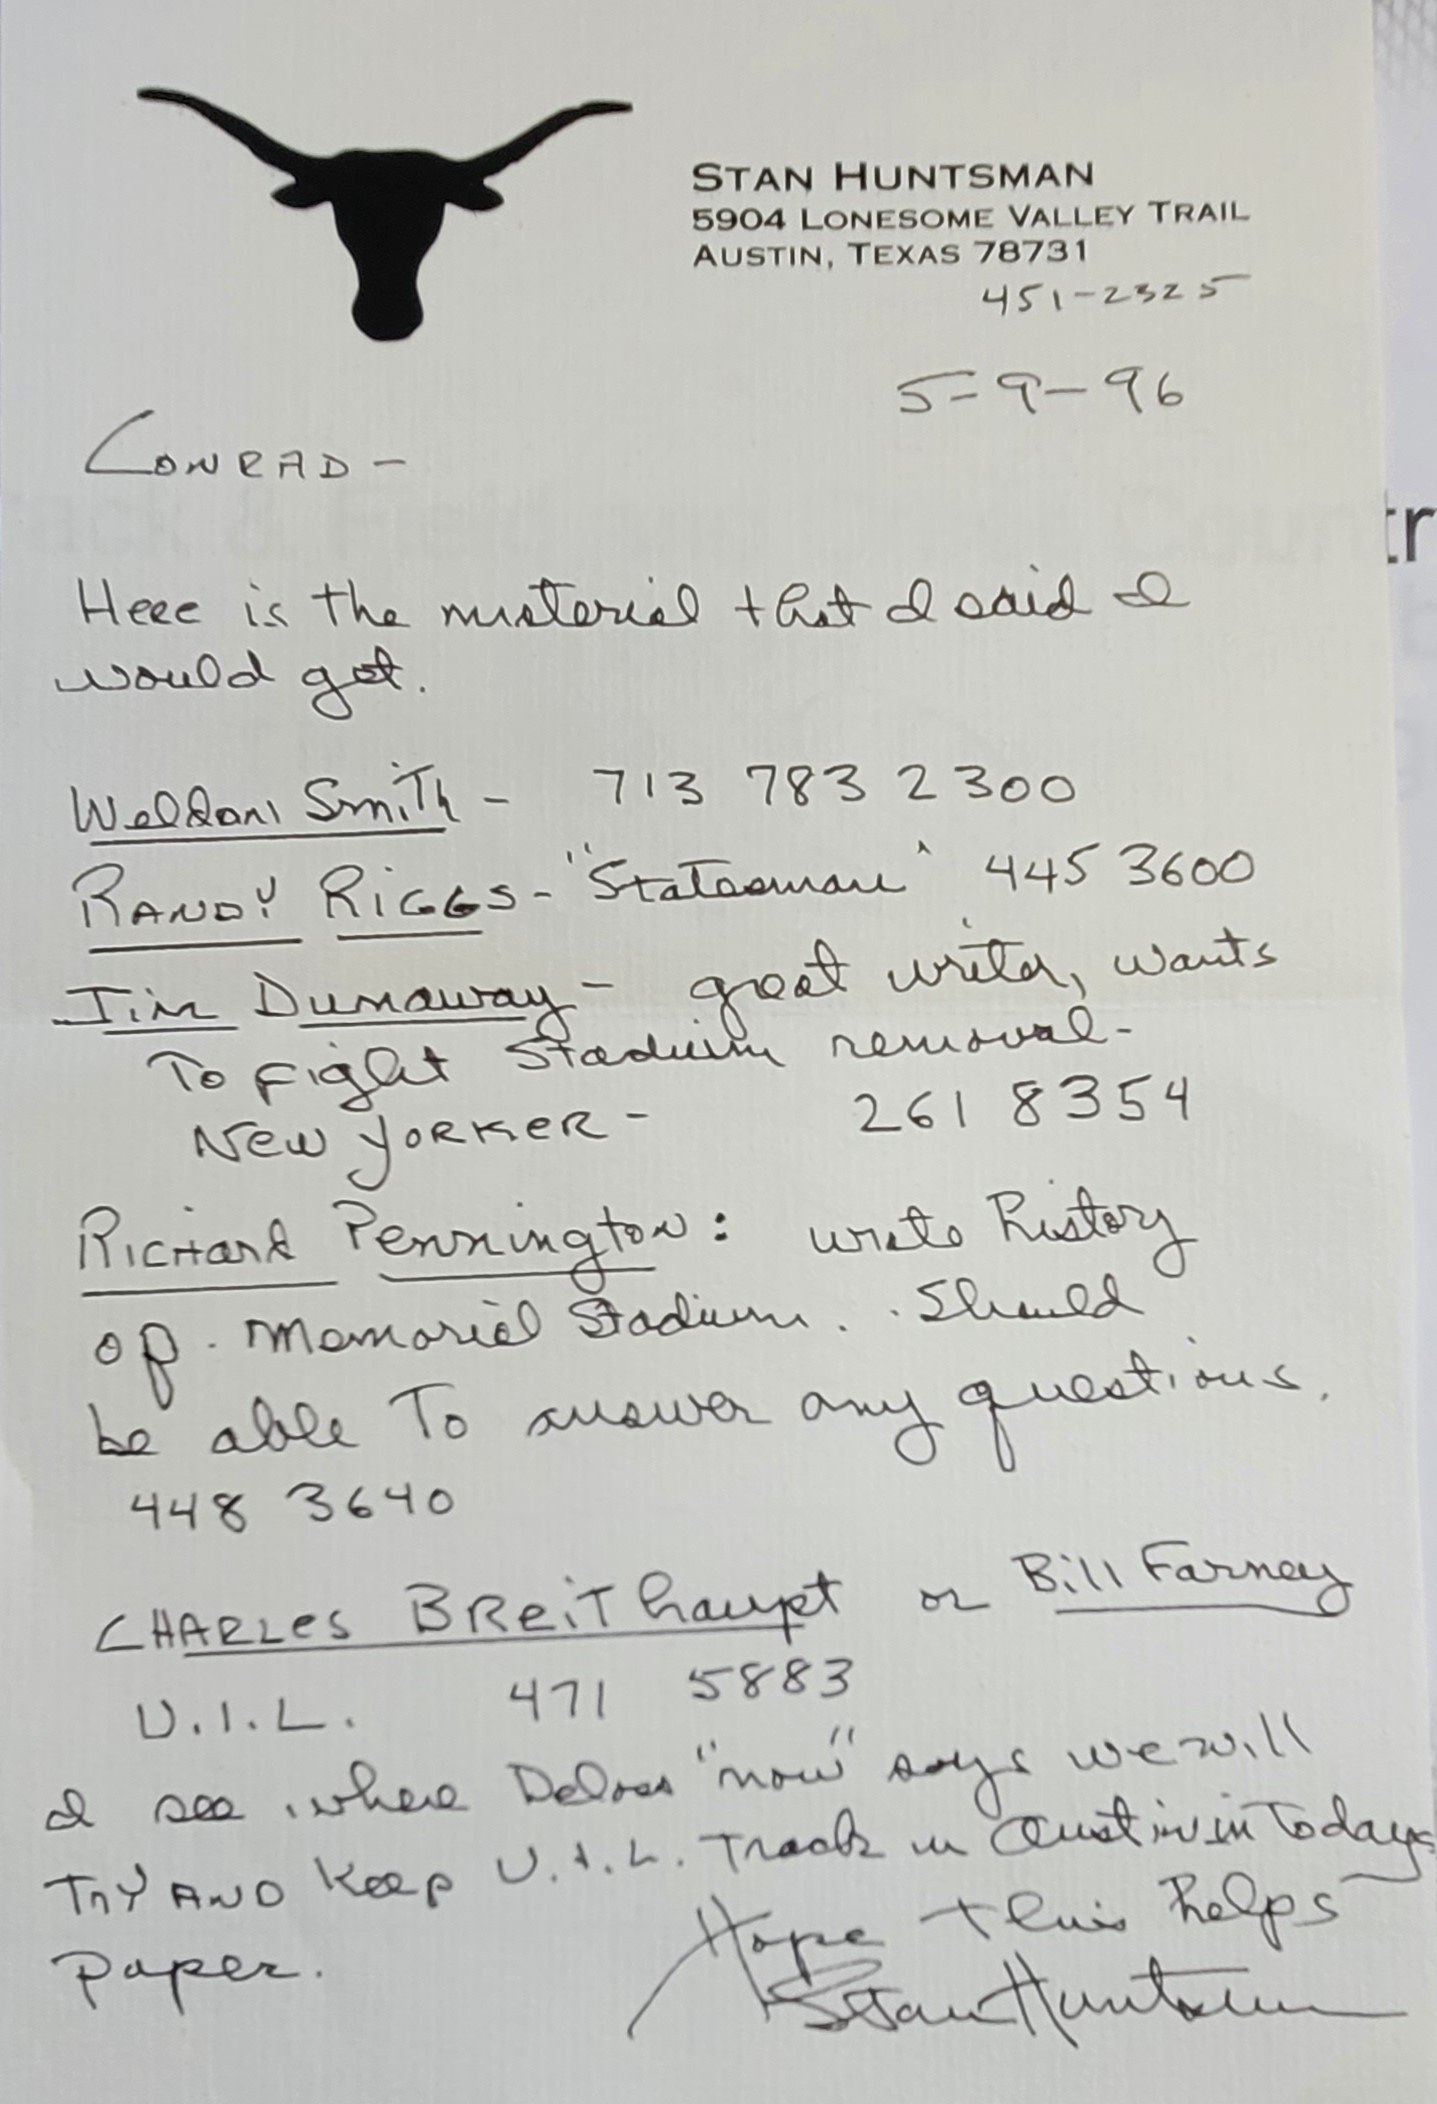 STAN HUNTSMAN
5904 LONESOME VALLEY TRAIL
AUSTIN, TEXAS 78731
451-2325
5-9-96
CONRAD -
Here is the material that I said I
would get.
Weldon Smith - 713 783 2300
RANDY RIGGS - "Statesman" 445 3600
Jim Dunaway - great writer, wants
To fight Stadium removal -
NEW YORKER - 261 8354
Richard Pennington: wrote history
of Memorial Stadium. Should
be able To answer any questions.
448 3640
CHARLES BREIThaupt or Bill Farney
U.I.L. 471 5883
I see where Deloss "now" says we will
TRY AND Keep U.I.L. Track in Austin in Todays
paper.
Hope this helps
Stan Huntsman
tr